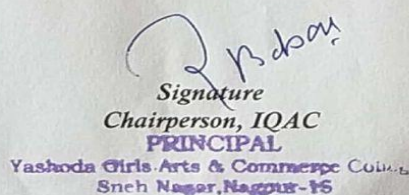 Signature
Chairperson, IQAC
PRINCIPAL
Yashoda Girls Arts & Commerce
Sneh Nagar, Nagpur-15